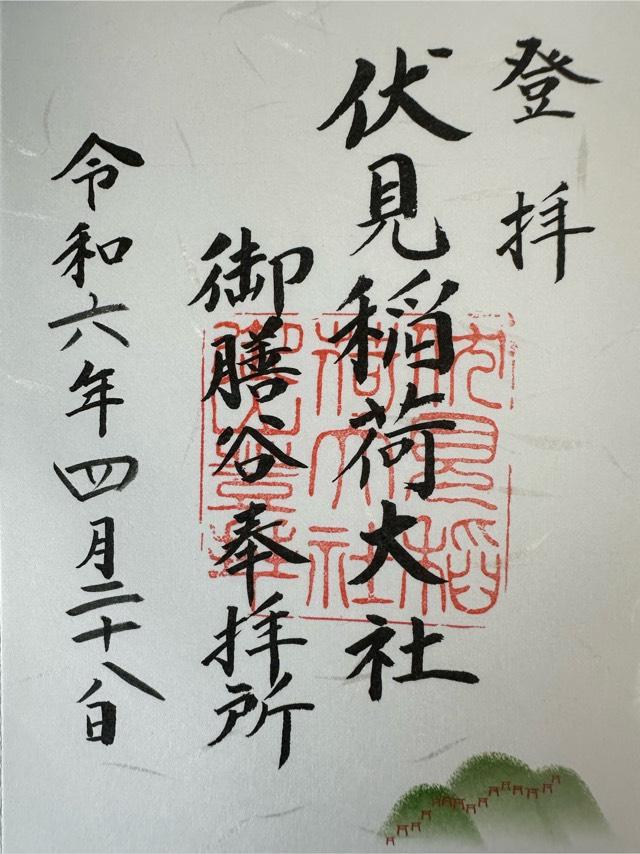 登拝
伏見稲荷大社
御膳谷奉拝所
令和六年四月二十八日